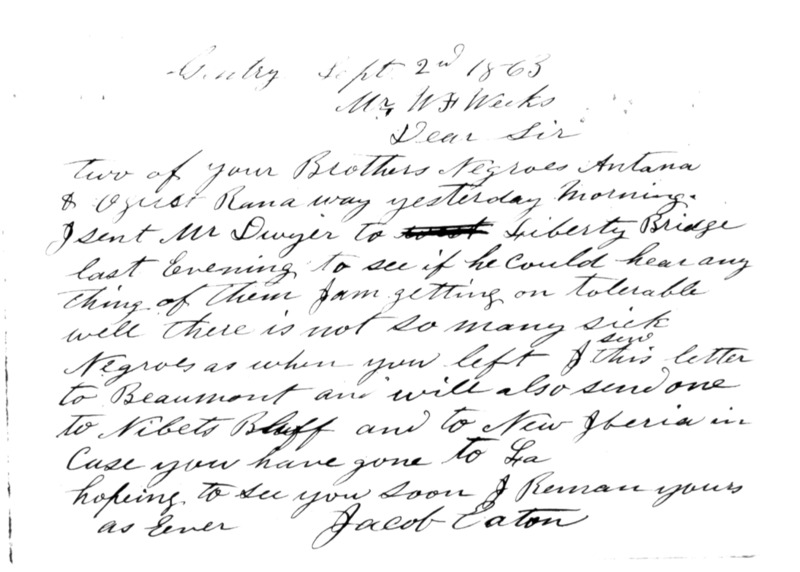 Gentry Sept. 2nd 1863
Mr, W F Weeks
Dear Sir
two of your Brothers Negroes Antana
& Ogust Rana way yesterday Morning.
I sent Mr Dwyer to Liberty Bridge
last Evening to see if he Could hear any
thing of them I am getting on tolerable
well there is not so many sick
Negroes as when you left I send this letter
to Beaumont and will also send one
to Nibets Bluff and to New Iberia in
Case you have gone to La
hoping to see you soon I Reman yours
as Ever Jacob Eaton